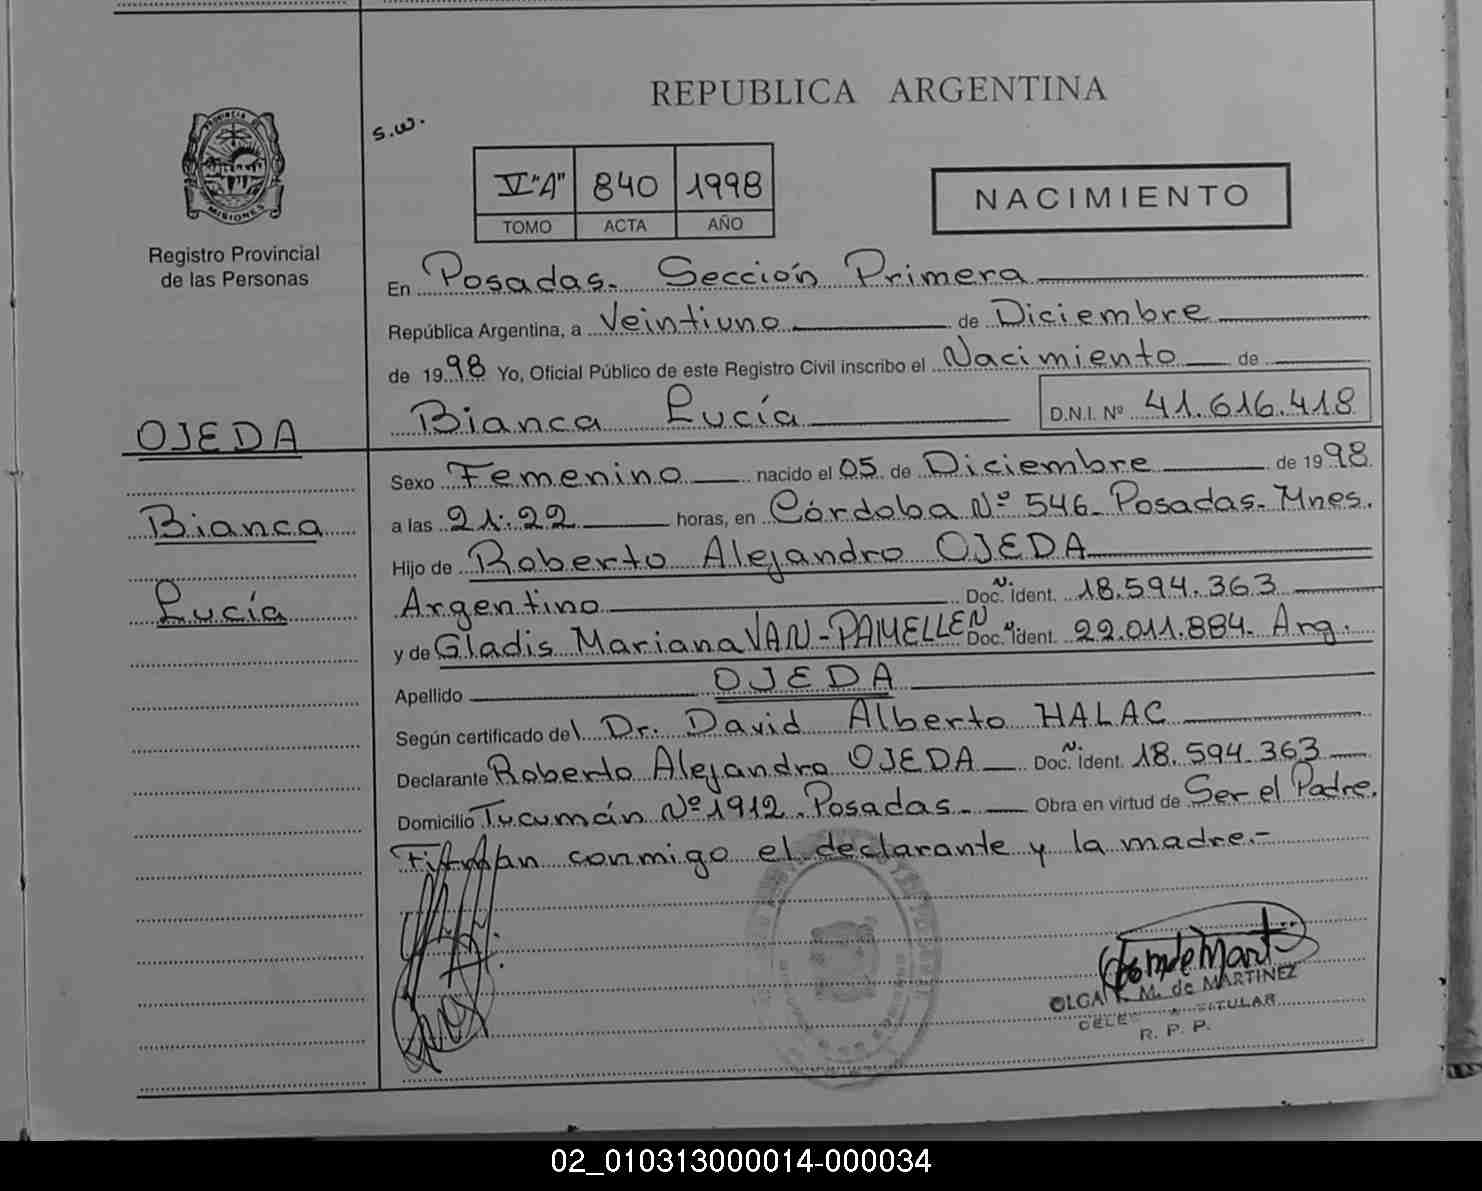 REPUBLICA ARGENTINA
s.w.
V"A" 840 1998
TOMO ACTA AÑO
NACIMIENTO
PROVINCIA DE
MISIONES
Registro Provincial
de las Personas
En Posadas. Sección Primera
República Argentina, a Veintiuno de Diciembre
de 1998 Yo, Oficial Público de este Registro Civil inscribo el Nacimiento de
Bianca Lucía D.N.I. Nº 41.616.418
OJEDA
Bianca
Lucía
Sexo Femenino nacido el 05 de Diciembre de 1998
a las 21:22 horas, en Córdoba Nº 546. Posadas. Mnes.
Hijo de Roberto Alejandro OJEDA
Argentino Doc. N. Ident. 18.594.363
y de Gladis Mariana VAN-PAMELLEN Doc. N. Ident. 22.011.884. Arg.
Apellido OJEDA
Según certificado del Dr. David Alberto HALAC
Declarante Roberto Alejandro OJEDA Doc. N. Ident. 18.594.363
Domicilio Tucumán Nº 1912. Posadas. Obra en virtud de Ser el Padre.
Firman conmigo el declarante y la madre.-
OLGA M. de MARTINEZ
TITULAR
R. P. P.
02_010313000014-000034